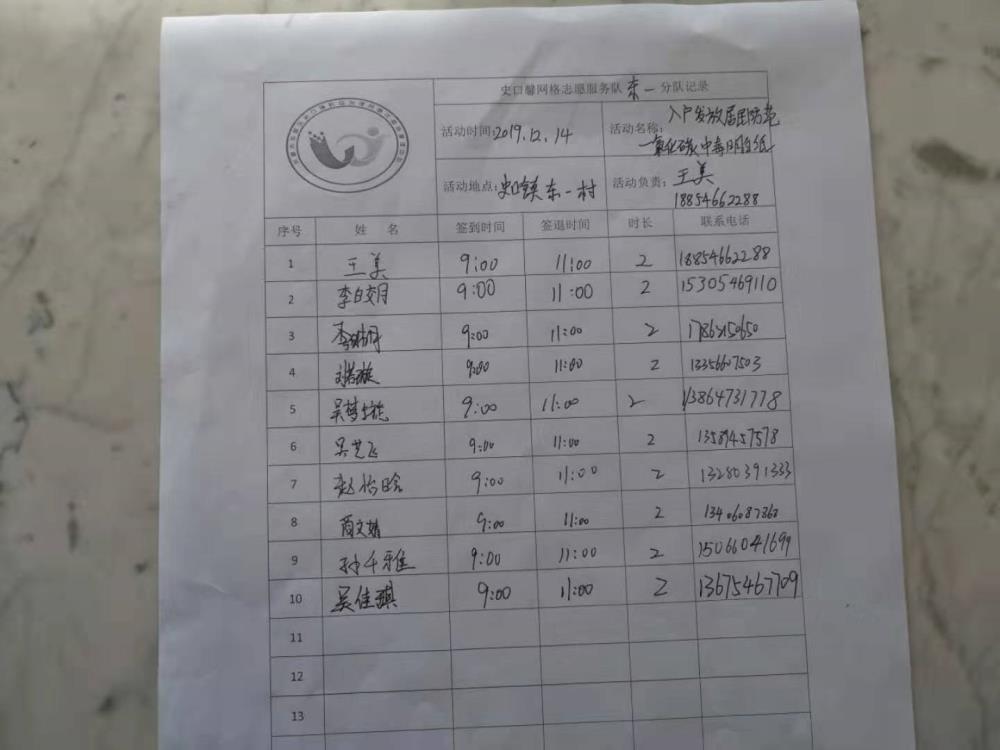 史口馨网格志愿服务队 东一 分队记录
活动时间:2019.12.14
活动名称: 入户发放居民防范
一氧化碳中毒明白纸
活动地点: 史口镇东一村
活动负责: 王美
18854662288
序号 姓 名 签到时间 签退时间 时长 联系电话
1 王美 9:00 11:00 2 18854662288
2 李皎月 9:00 11:00 2 15305469110
3 9:00 11:00 2
4 9:00 11:00 2 13356607503
5 吴梦璇 9:00 11:00 2 13864731778
6 吴艺飞 9:00 11:00 2 13589457578
7 赵怡晗 9:00 11:00 2 13280391333
8 商文婧 9:00 11:00 2
9 孙千雅 9:00 11:00 2 15066041699
10 吴佳琪 9:00 11:00 2 13675467709
11
12
13